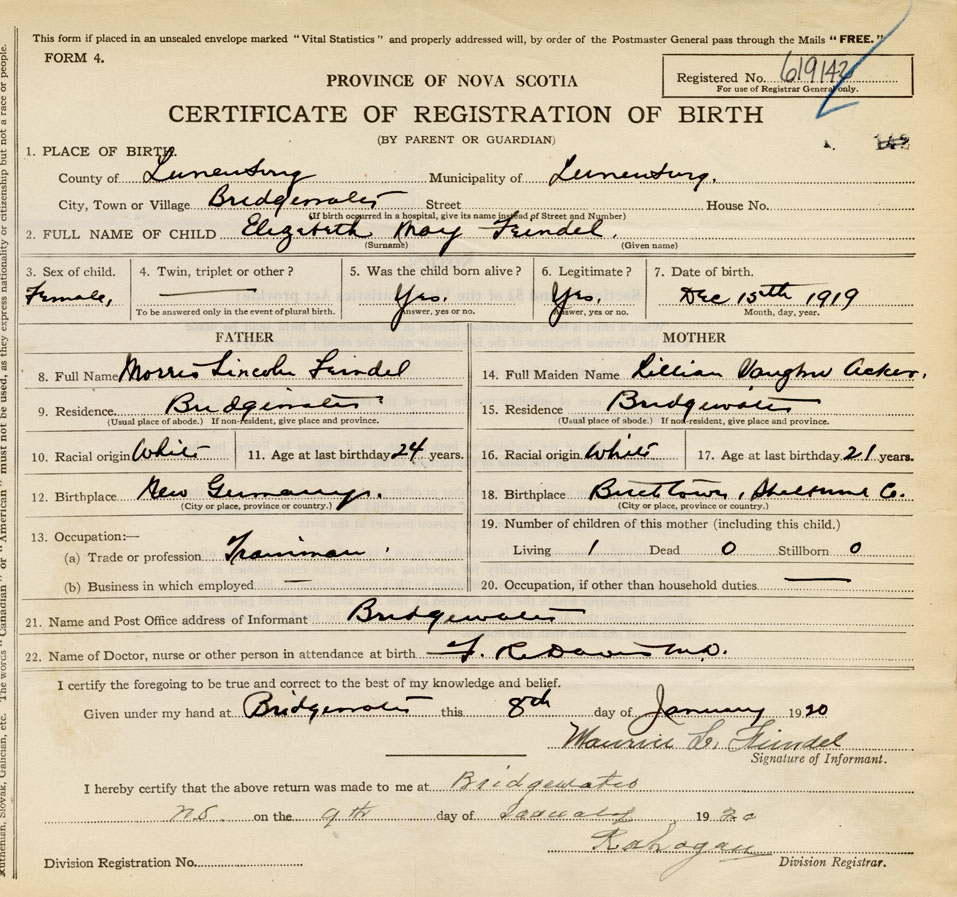 This form if placed in an unsealed envelope marked "Vital Statistics" and properly addressed will, by order of the Postmaster General pass through the Mails "FREE."
FORM 4.
Registered No. 619142
For use of Registrar General only.
PROVINCE OF NOVA SCOTIA
CERTIFICATE OF REGISTRATION OF BIRTH
(BY PARENT OR GUARDIAN)
142
1. PLACE OF BIRTH.
County of Lunenburg Municipality of Lunenburg.
City, Town or Village Bridgewater Street House No.
(If birth occurred in a hospital, give its name instead of Street and Number)
2. FULL NAME OF CHILD Elizabeth May Feindel.
(Surname) (Given name)
3. Sex of child. 4. Twin, triplet or other? 5. Was the child born alive? 6. Legitimate? 7. Date of birth.
Female, — Yes. Yes. Dec 15th 1919
To be answered only in the event of plural birth. Answer, yes or no. Answer, yes or no. Month, day, year.
FATHER
8. Full Name Morris Lincoln Feindel
9. Residence. Bridgewater
(Usual place of abode.) If non-resident, give place and province.
10. Racial origin White 11. Age at last birthday 24 years.
12. Birthplace New Germany.
(City or place, province or country.)
13. Occupation:—
(a) Trade or profession Trainman.
(b) Business in which employed —
MOTHER
14. Full Maiden Name Lillian Vaughn Acker.
15. Residence Bridgewater
(Usual place of abode.) If non-resident, give place and province.
16. Racial origin White 17. Age at last birthday 21 years.
18. Birthplace Shelburne Co.
(City or place, province or country.)
19. Number of children of this mother (including this child.)
Living 1 Dead 0 Stillborn 0
20. Occupation, if other than household duties. —
21. Name and Post Office address of Informant Bridgewater
22. Name of Doctor, nurse or other person in attendance at birth F. R. Davis M.D.
I certify the foregoing to be true and correct to the best of my knowledge and belief.
Given under my hand at Bridgewater this 8th day of January 1920
Maurice L. Feindel
Signature of Informant.
I hereby certify that the above return was made to me at Bridgewater
NS. on the 9th day of January 1920
Division Registration No. Division Registrar.
Ruthenian, Slovak, Galician, etc. The words "Canadian" or "American" must not be used, as they express nationality or citizenship but not a race or people.